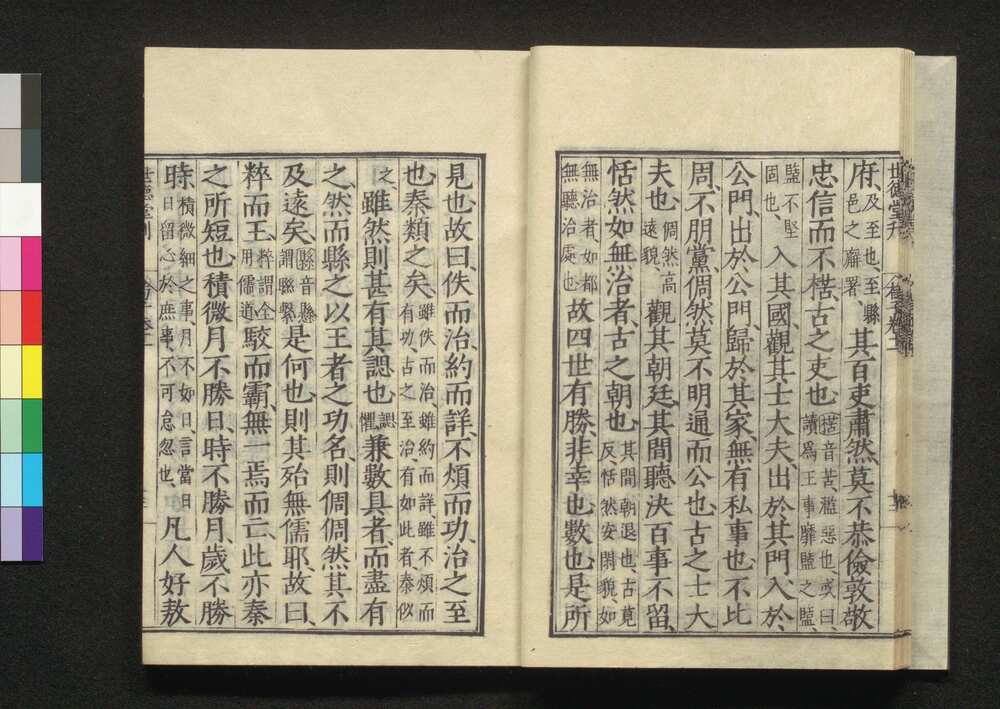 世德堂刊
府、及至也、至縣邑之廨署、其百吏肅然、莫不恭儉敦敬
忠信而不楛、古之吏也楛音苦、濫惡也、或曰、讀爲王事靡盬之盬、
盬不堅固也、入其國、觀其士大夫、出於其門、入於、
公門、出於公門、歸於其家、無有私事也、不比
周、不朋黨、倜然莫不明通而公也、古之士大
夫也、倜然高遠貌、觀其朝廷、其間聽決百事不留、
恬然如無治者、古之朝也其間朝退也、古莧反恬然安閑貌如
無治者、如都無聽治處也故四世有勝、非幸也、數也、是所
見也、故曰、佚而治、約而詳、不煩而功、治之至
也、秦類之矣、雖佚而治雖約而詳雖不煩而有功、古之至治、有如此者、秦似
之、雖然則甚有其諰也諰懼兼數具者、而盡有
之、然而縣之以王者之功名、則倜倜然其不
及遠矣、縣音懸謂聯繫是何也、則其殆無儒耶、故曰、
粹而王、粹謂全用儒道駁而霸、無一焉而亡、此亦秦
之所短也、積微月不勝日、時不勝月、歲不勝
時、積微細之事、月不如日、言當日日留心於庶事、不可怠忽也、凡人好敖